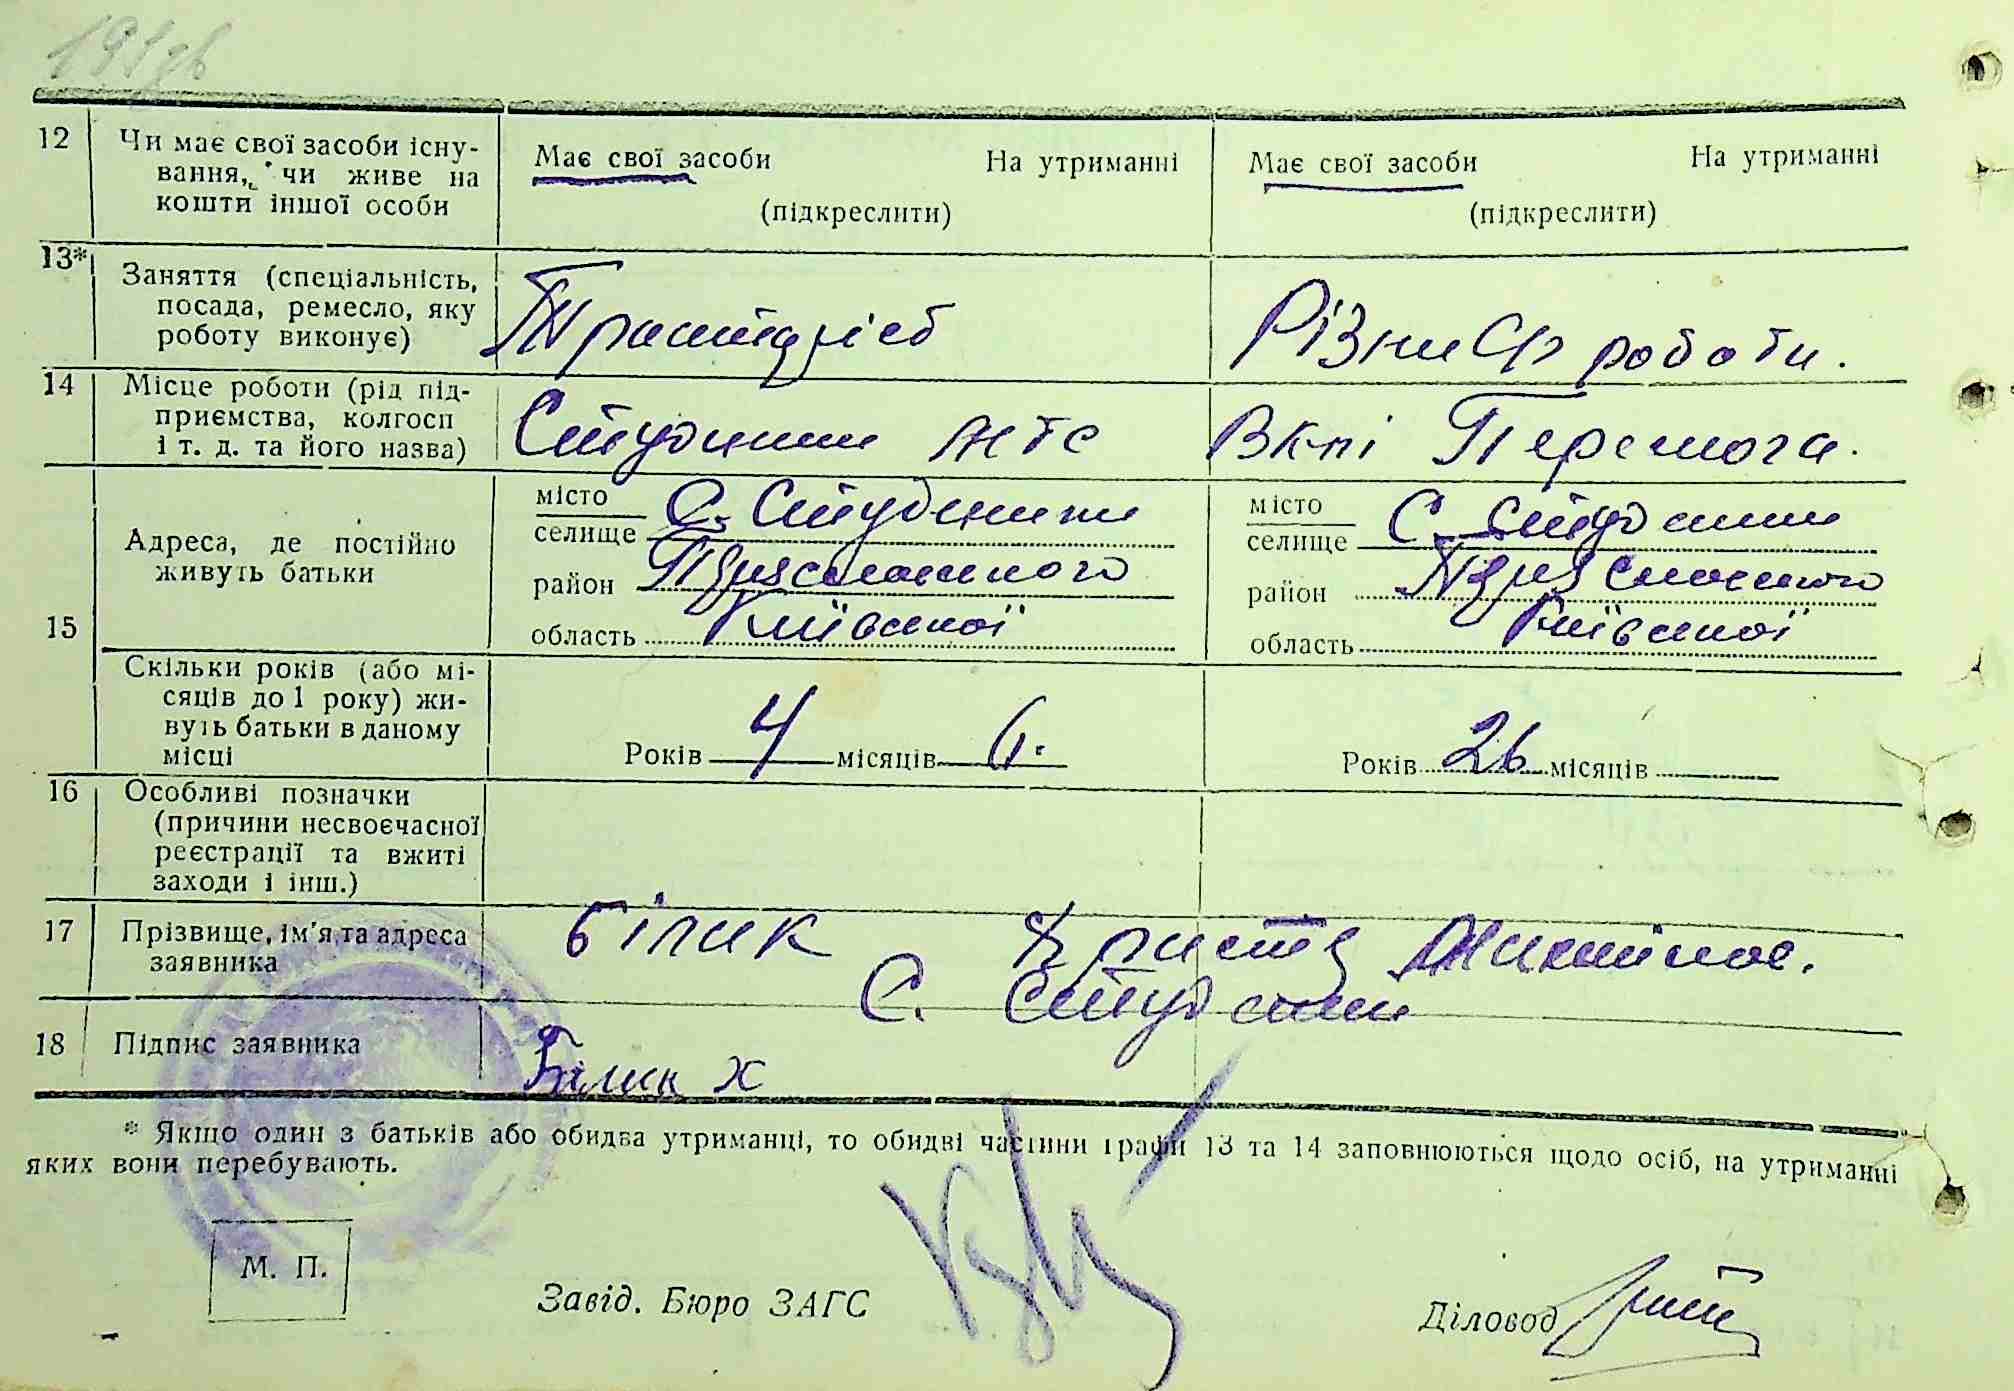 12 Чи має свої засоби існу-
вання, чи живе на
кошти іншої особи
Має свої засоби На утриманні
(підкреслити)
Має свої засоби На утриманні
(підкреслити)
13* Заняття (спеціальність,
посада, ремесло, яку
роботу виконує)
Різни роботи.
14 Місце роботи (рід під-
приємства, колгосп
і т. д. та його назва)
МТС
Перемога.
15
Адреса, де постійно
живуть батьки
місто
селище С. Студеники
район
область Київської
місто
селище С.
район
область Київської
Скільки років (або мі-
сяців до 1 року) жи-
вуть батьки в даному
місці
Років 4 місяців 6.
Років 26 місяців
16 Особливі позначки
(причини несвоєчасної
реєстрації та вжиті
заходи і інш.)
17 Прізвище, ім'я та адреса
заявника
Білик Христя
С.
18 Підпис заявника
Білик Х
* Якщо один з батьків або обидва утриманці, то обидві частини графи 13 та 14 заповнюються щодо осіб, на утриманні
яких вони перебувають.
М. П.
Завід. Бюро ЗАГС
Діловод